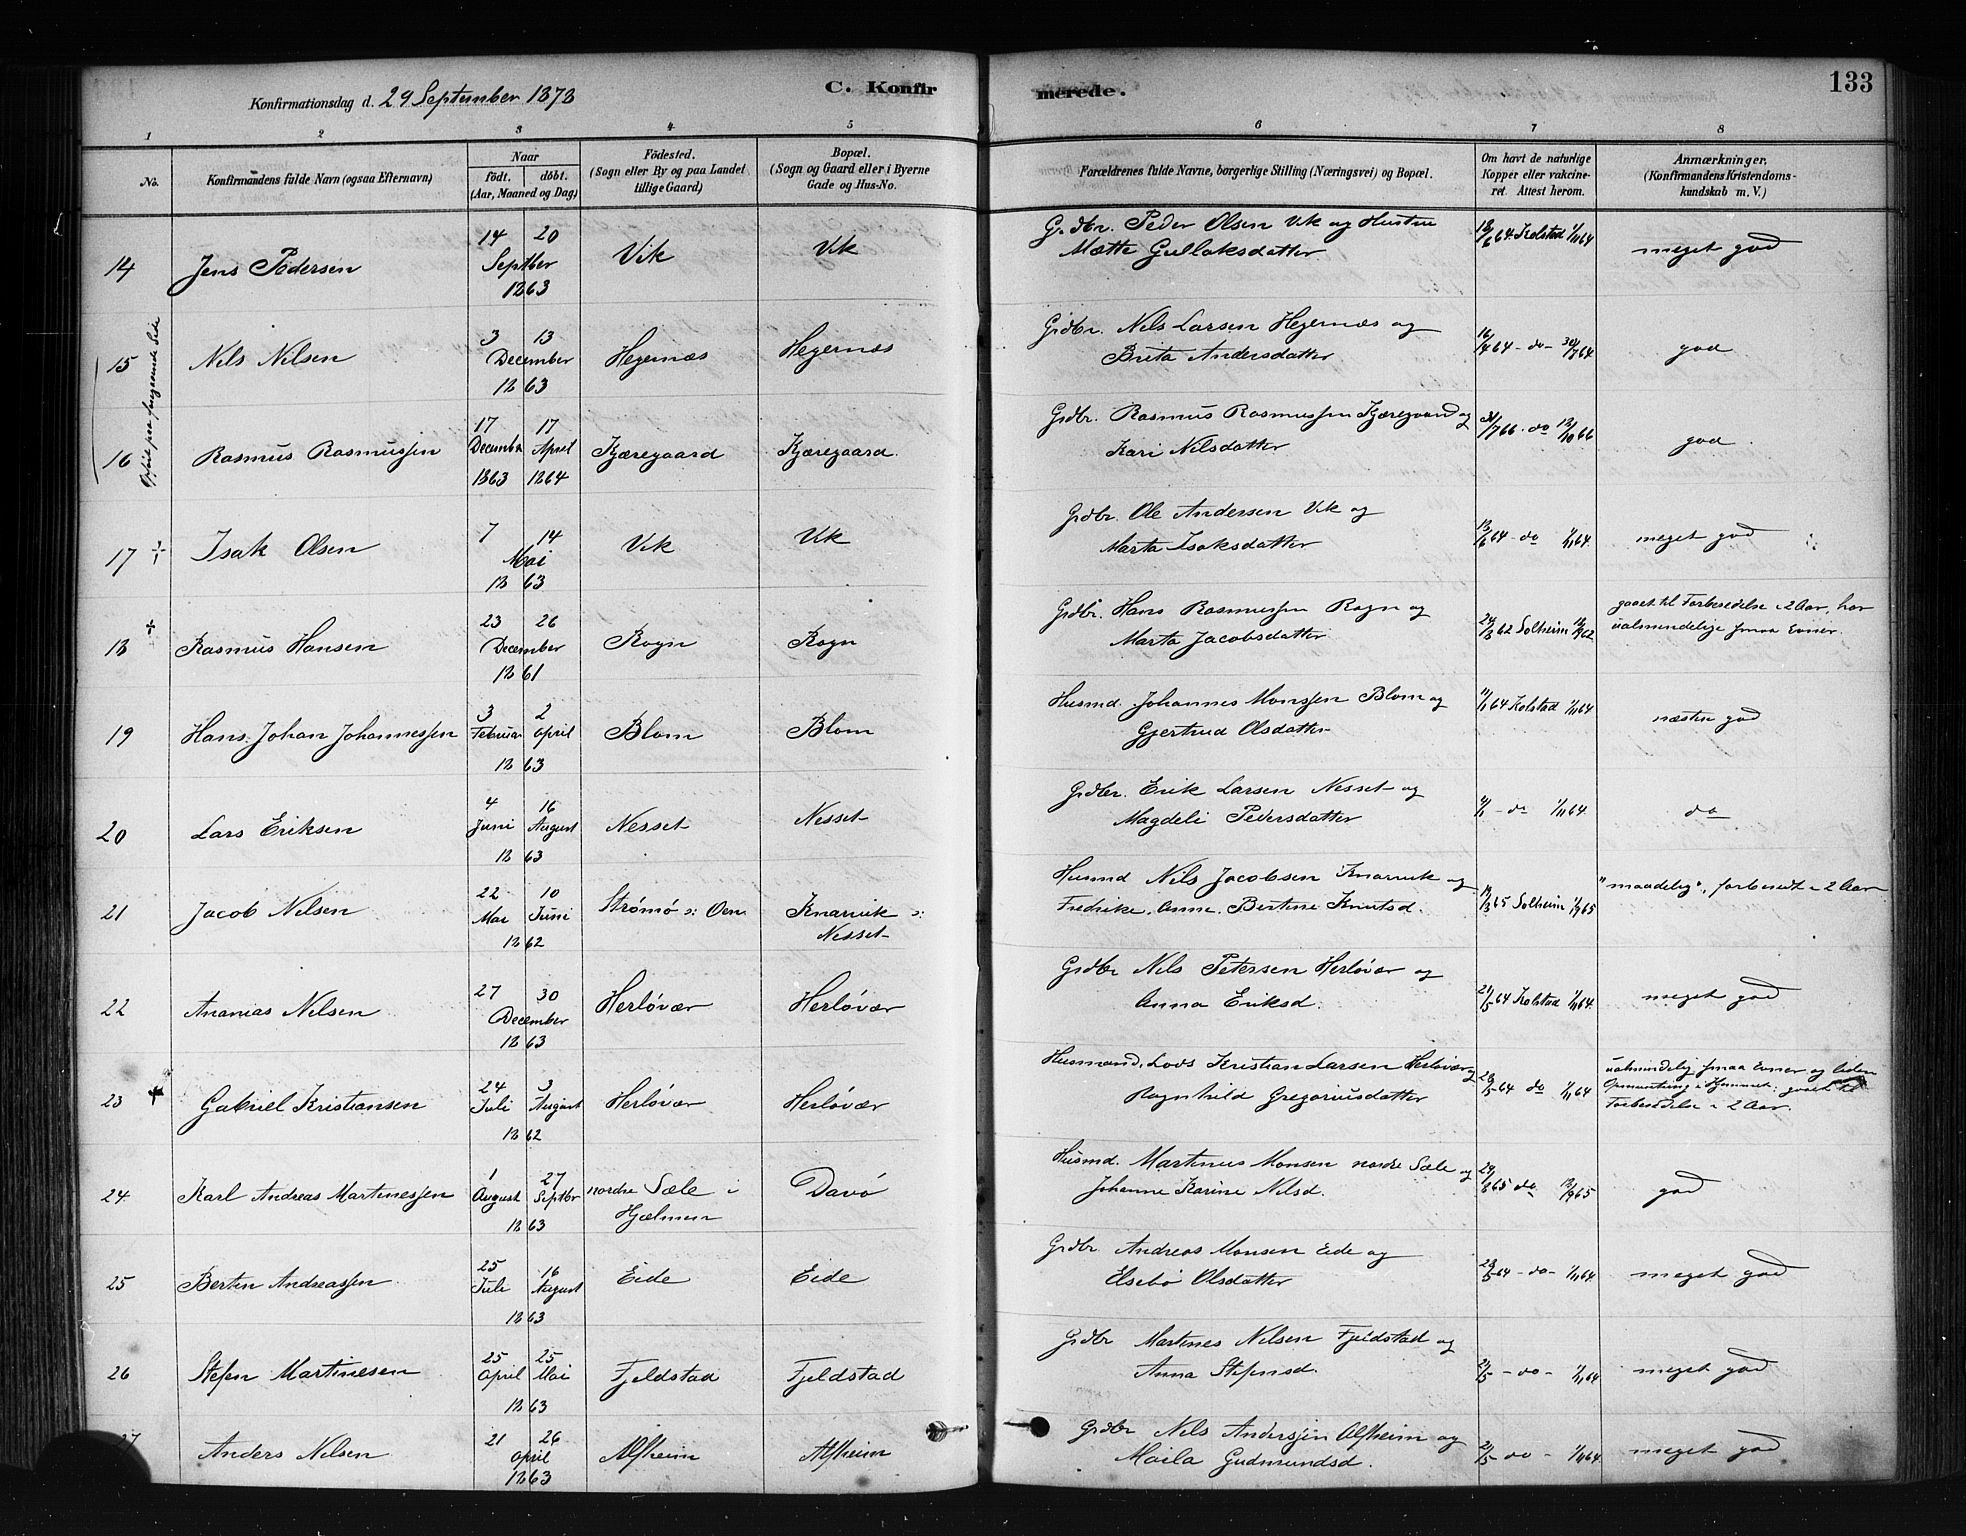 Konfirmationsdag d. 29 September 1878
C. Konfirmerede.
133
1 2 3 4 5 6 7 8
No.
Konfirmandens fulde Navn (ogsaa Efternavn)
Naar
födt. döbt.
(Aar, Maaned og Dag)
Födested.
(Sogn eller By og paa Landet
tillige Gaard)
Bopæl.
(Sogn og Gaard eller i Byerne
Gade og Hus-No.
Forældrenes fulde Navne, borgerlige Stilling (Næringsvei) og Bopæl.
Om havt de naturlige
Kopper eller vakcine-
ret. Attest herom.
Anmærkninger,
(Konfirmandens Kristendoms-
kundskab m. V.)
14 Jens Pedersen 14 20 Septber 1863 Vik Vik
Grdbr. Peder Olsen Vik og Hustru
Mætte Gullaksdatter
18/6 64 Kolstad 1/11 64 meget god
Opført paa foregaaende Side
15 Nils Nilsen 3 13 December 1863 Hegernæs Hegernæs
Grdbr. Nils Larsen Hegernæs og
Brita Andersdatter
16/4 64 - do - 30/7 64 god
16 Rasmus Rasmussen 17 December 1863 17 April 1864 Kjæregaard Kjæregaard.
Grdbr. Rasmus Rasmussen Kjæregaard og
Kari Nilsdatter
/7 66 - do /10 66 god
17 + Isak Olsen 7 14 Mai 1863 Vik Vik
Grdbr. Ole Andersen Vik og
Marta Isaksdatter
13/6 64 - do 1/11 64. meget god
18 + Rasmus Hansen 23 26 December 1861 Rogn Rogn
Grdbr. Hans Rasmussen Rogn og
Marta Jacobsdatter
/8 62 Solheim /9 62
gaaet til Forberedelse i 2 Aar, har
ualmindelige smaa Evner.
19 Hans Johan Johannessen 3 Februar 2 April 1863 Blom Blom
Husmd. Johannes Monssen Blom og
Gjertrud Olsdatter
64 Kolstad 1/11 64 næsten god
20 Lars Eriksen 4 Juni 16 August 1863 Nesset Nesset
Grdbr. Erik Larsen Nesset og
Magdeli Pedersdatter
- do 1/11 64. do
21 Jacob Nilsen 22 Mai 10 Juni 1862 Strømø i Oen Knarvik i
Nesset
Husmd Nils Jacobsen Knarvik og
Fredrike Anne Bertine Knutsd.
/3 65 Solheim /9 65 "maadelig", forberedt i 2 Aar
22 Ananias Nilsen 27 30 December 1863 Herløvær Herløvær
Grdbr Nils Petersen Herløvær og
Anna Eriksd.
21/5 64 Kolstad 1/11 64. meget god
23 + Gabriel Kristiansen 24 Juli 3 August 1862 Herløvær Herløvær
Husmand, Lods Kristian Larsen Herløvær og
Ragnhild Gregoriusdatter
/5 64 do 1/11 64
ualmindelig smaa Evner og liden
Opmuntring i Hjemmet: gaaet til
Forberedelse i 2 Aar.
24 Karl Andreas Martinessen 1 August 27 Septbr 1863 nordre Sæle i
Hjælmen Davø
Husmd. Martinus Monsen nordre Sæle og
Johanne Karine Nilsd.
/8 65 do /9 65 god
25 Berten Andreassen 25 Juli 16 August 1863 Eide Eide
Grdbr Andreas Monsen Eide og
Elsebø Olsdatter
/5 64 - do - 1/11 64 meget god
26 Stefen Martinesen 25 April 25 Mai 1863 Fjeldstad Fjeldstad
Grdbr Martines Nilsen Fjeldstad og
Anna Stefensd.
21/5 - do - 1/11 64 meget god
27 Anders Nilsen 21 26 April 1863 Alfheim Alfheim
Grdbr Nils Anderssen Alfheim og
Maila Gudmundsd.
21/5 - do - 1/11 64. meget god